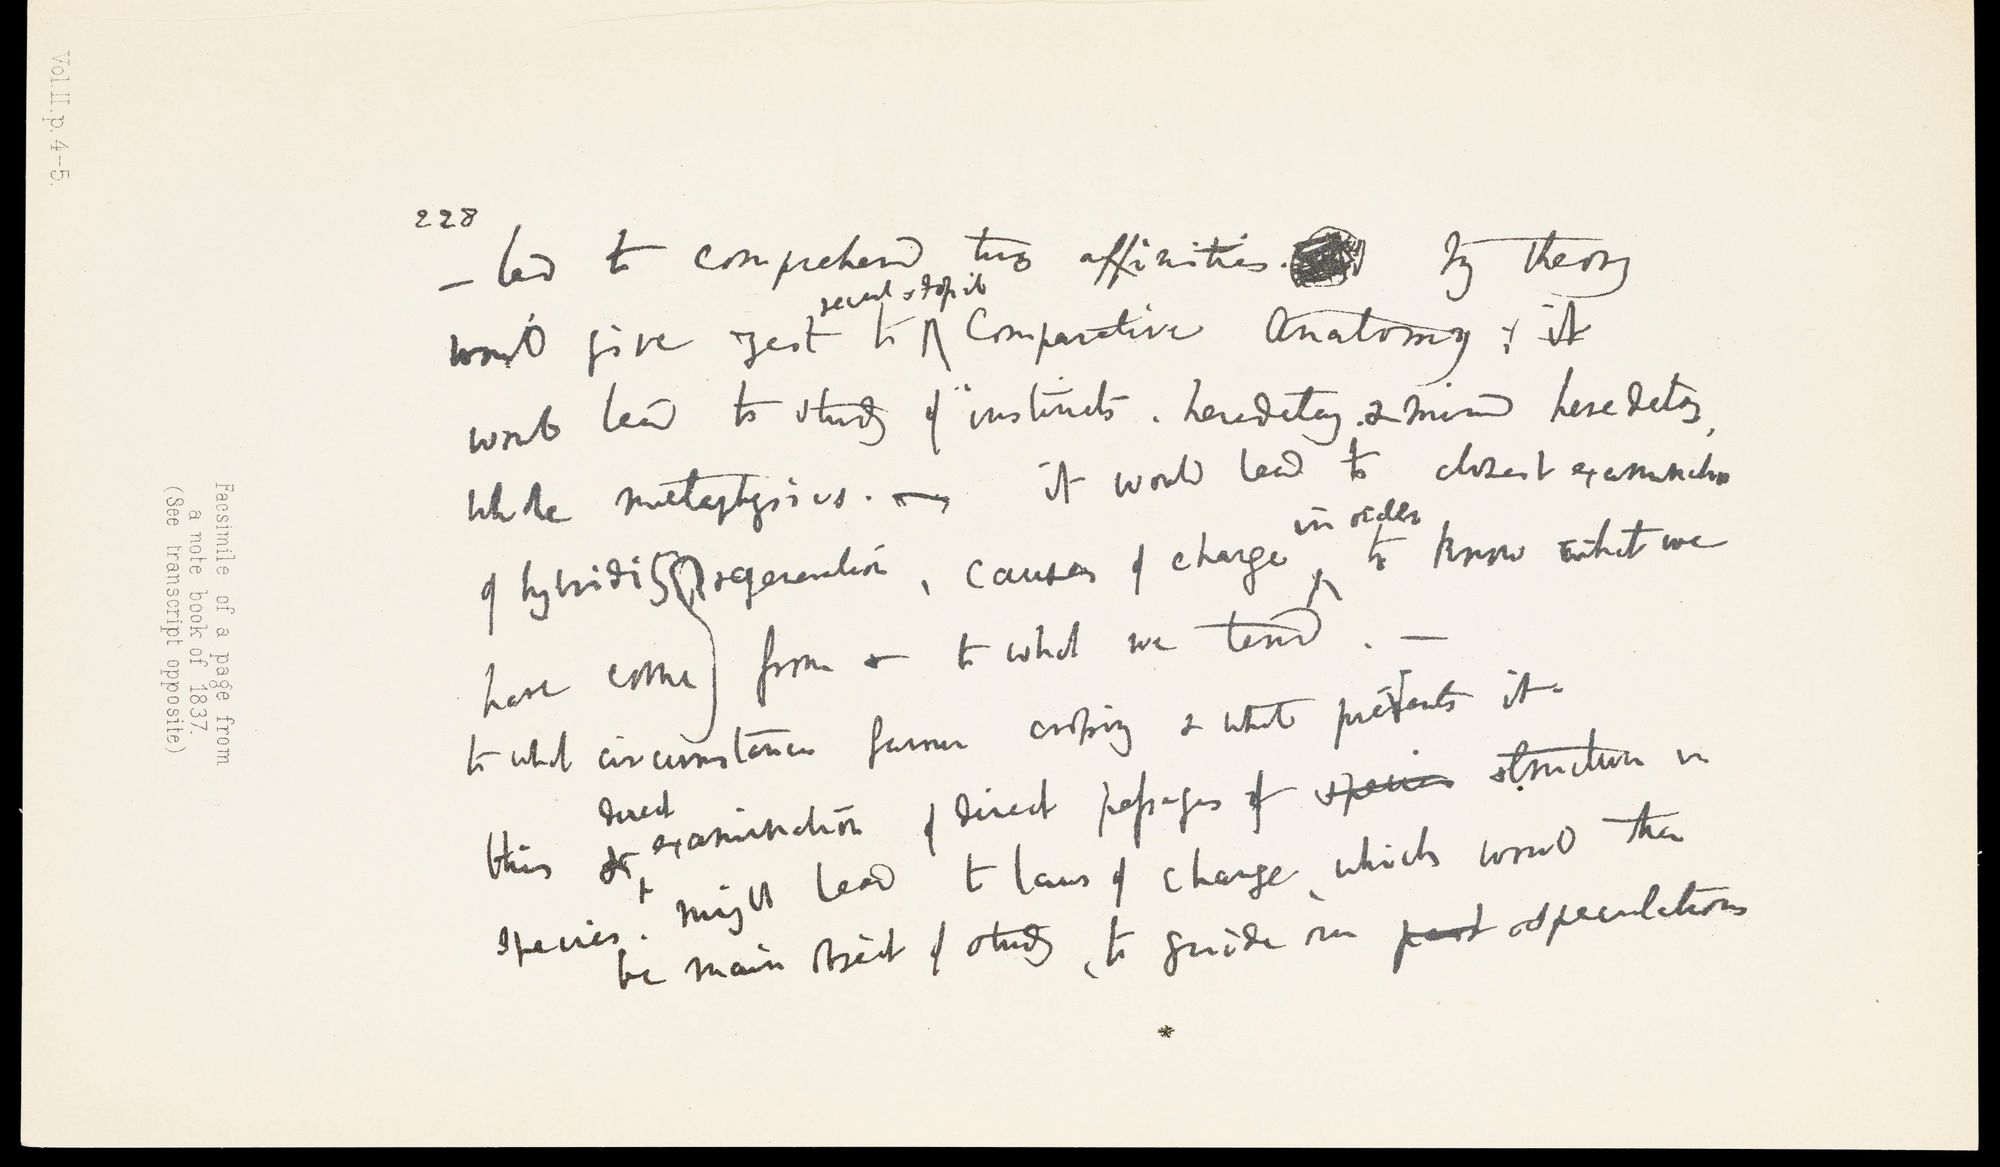 Vol. II. p. 4-5.
Facsimile of a page from
a note book of 1837.
(See transcript opposite)
228
— led to comprehend true affinities. My theory
would give zest to recent & fossil Comparative Anatomy; it
would lead to study of instincts. heredetary & mind heredetary,
whole metaphysics. — it would lead to closest examination
of hybridity generation, causes of change in order to know what we
have come from & to what we tend. —
to what circumstances favour crossing & what prevents it —
this & direct examination of direct passages of species structure in
species. might lead to laws of change, which would then
be main object of study, to guide our past speculations
*